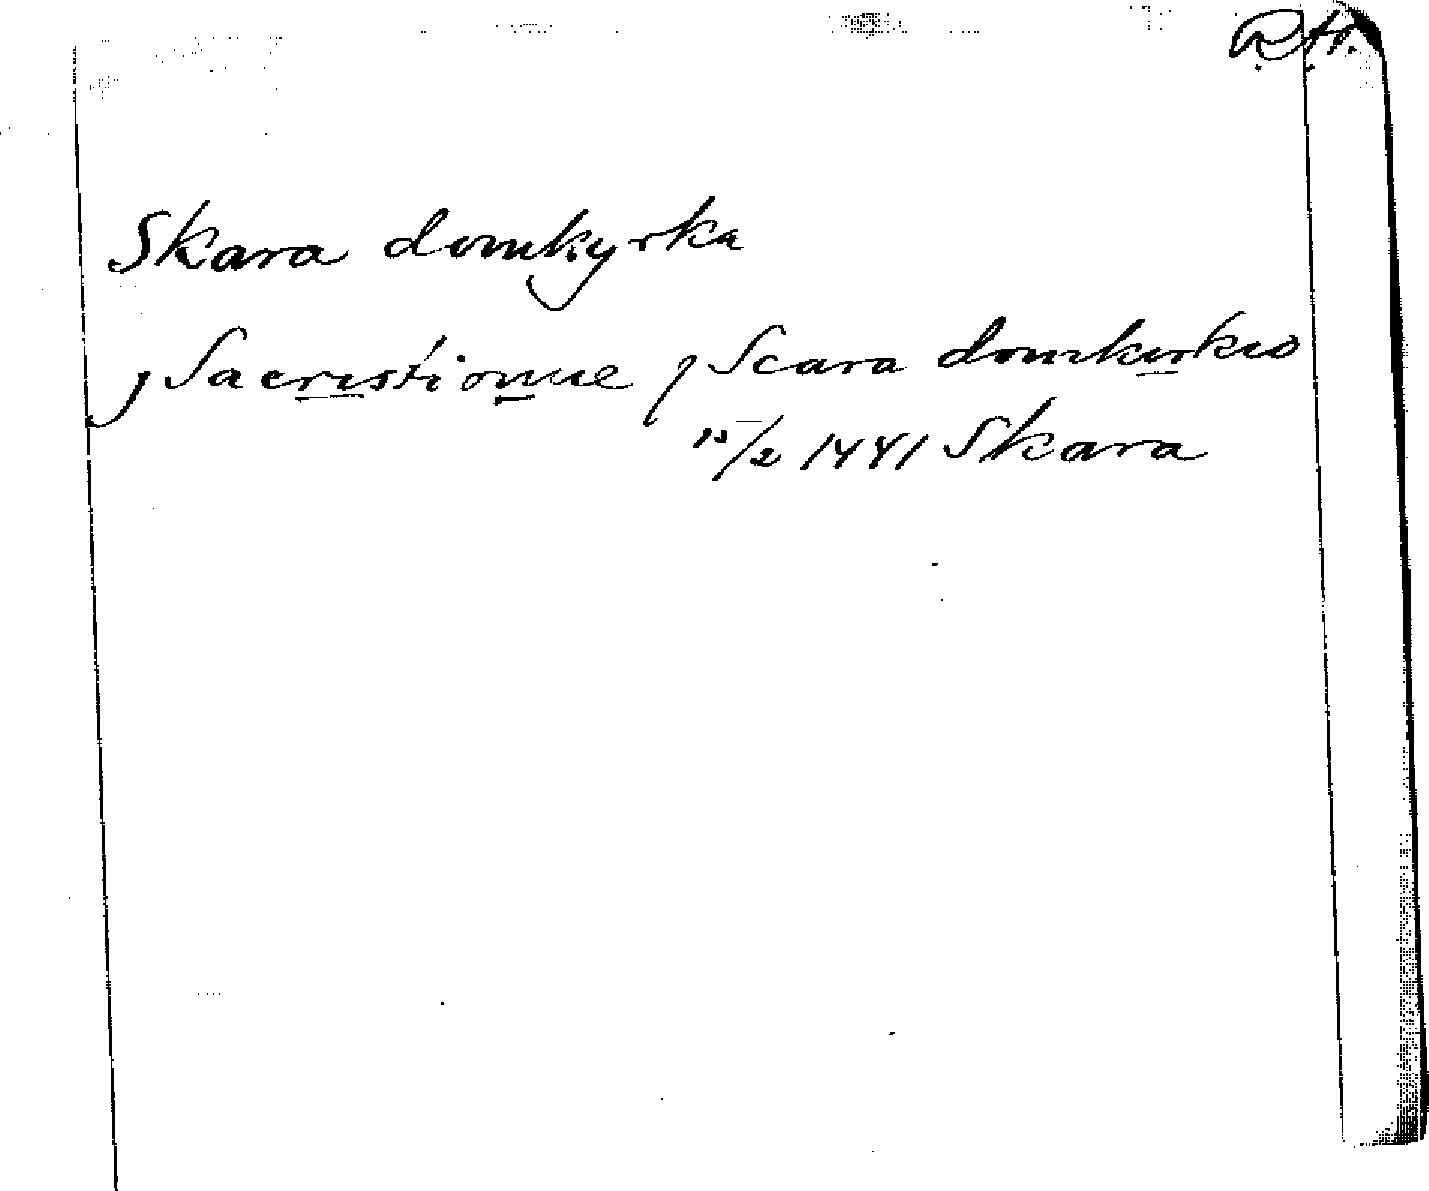 Skara domkyrka
j Sacristionne j Scara domkirkio
15/2 1481 Skara